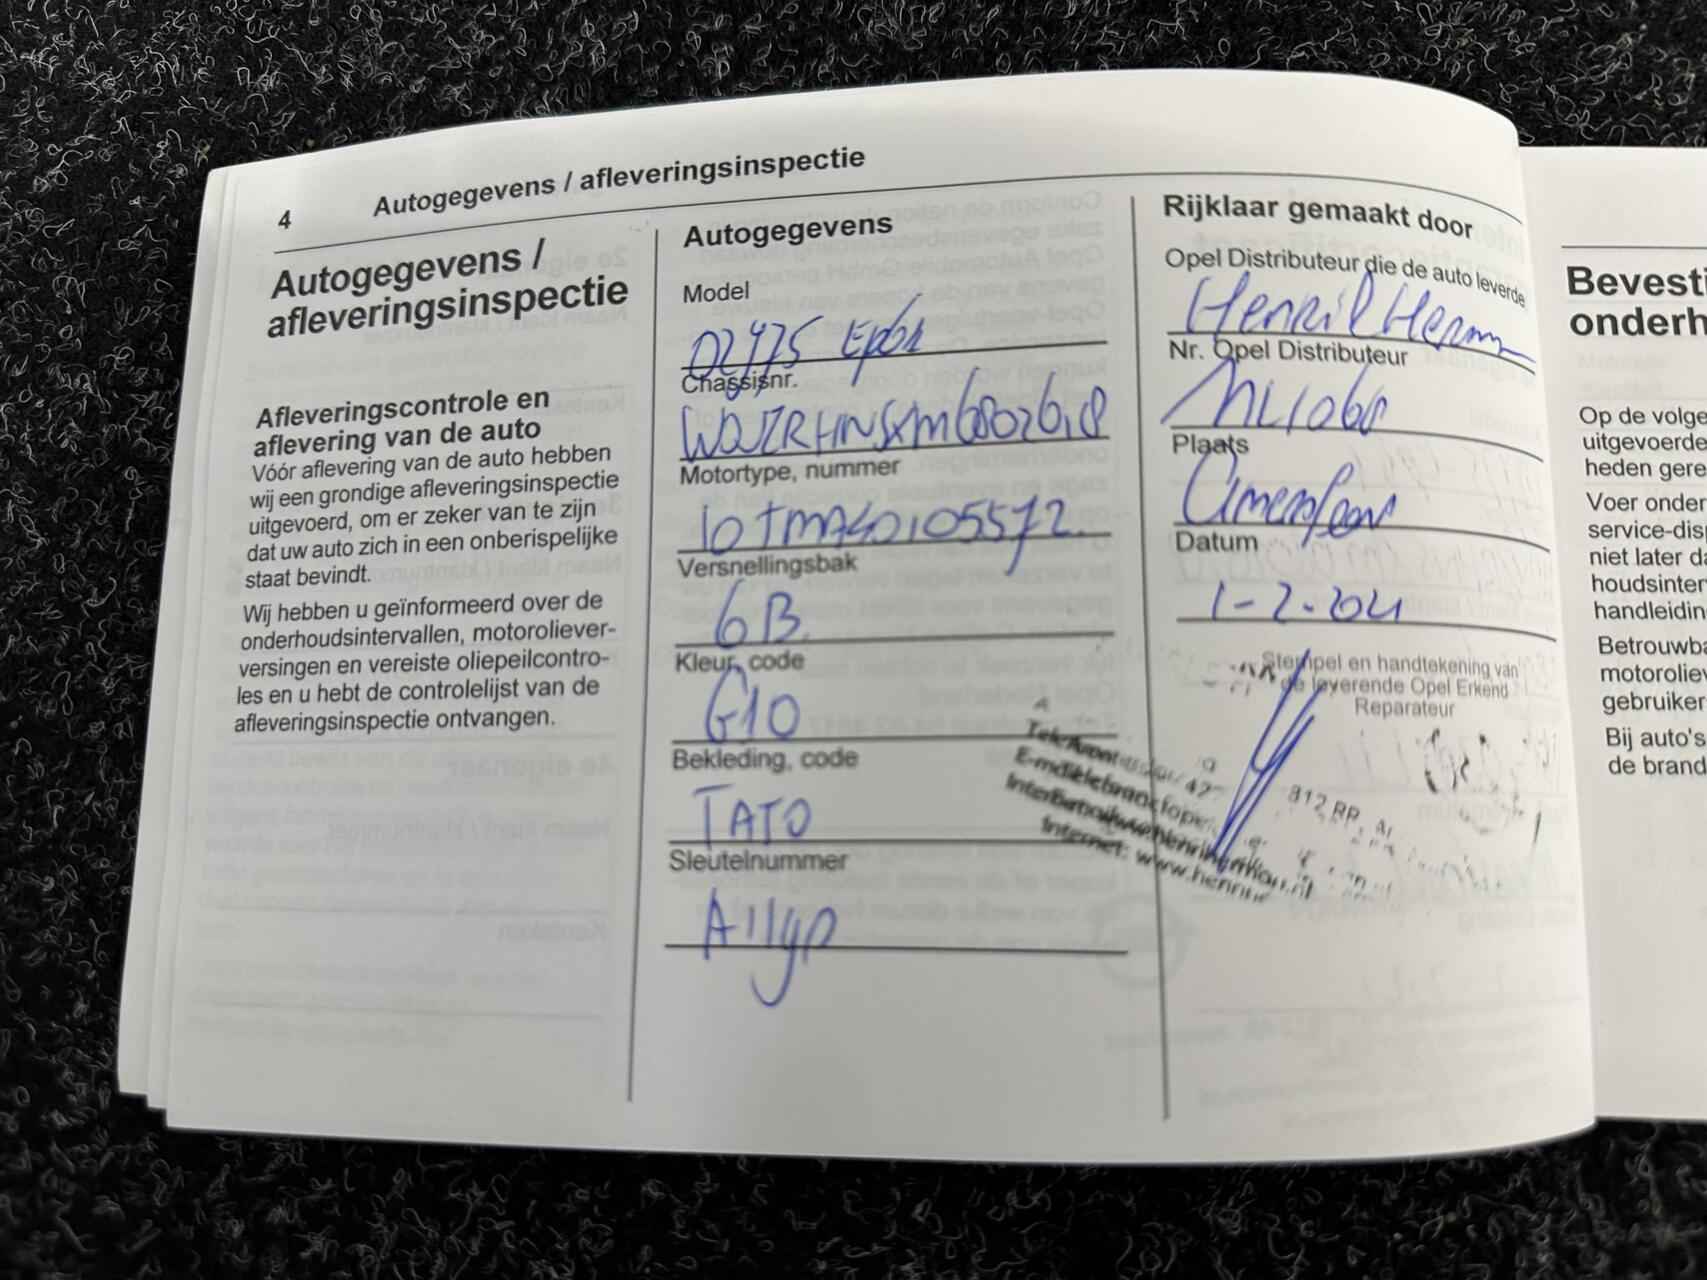 4
Autogegevens / afleveringsinspectie
Autogegevens /
afleveringsinspectie
Afleveringscontrole en
aflevering van de auto
Vóór aflevering van de auto hebben
wij een grondige afleveringsinspectie
uitgevoerd, om er zeker van te zijn
dat uw auto zich in een onberispelijke
staat bevindt.
Wij hebben u geïnformeerd over de
onderhoudsintervallen, motoroliever-
versingen en vereiste oliepeilcontro-
les en u hebt de controlelijst van de
afleveringsinspectie ontvangen.
Autogegevens
Model
Chassisnr.
Motortype, nummer
Versnellingsbak
6B
Kleur, code
G10
Bekleding, code
TATO
Sleutelnummer
Rijklaar gemaakt door
Opel Distributeur die de auto leverde
Nr. Opel Distributeur
Plaats
Datum
1-2-2021
Stempel en handtekening van
de leverende Opel Erkend
Reparateur
812 RP
Internet: www.henri
Bevesti
onderh
Op de volge
uitgevoerde
heden gere
Voer onder
service-disp
niet later da
houdsinterv
handleidin
Betrouwba
motoroliev
gebruiker
Bij auto's
de brand